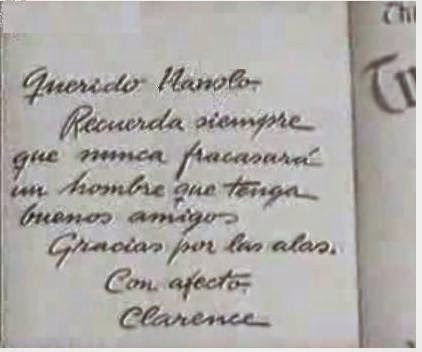 Querido Manolo-
Recuerda siempre
que nunca fracasará
un hombre que tenga
buenos amigos
Gracias por las alas.
Con afecto-
Clarence